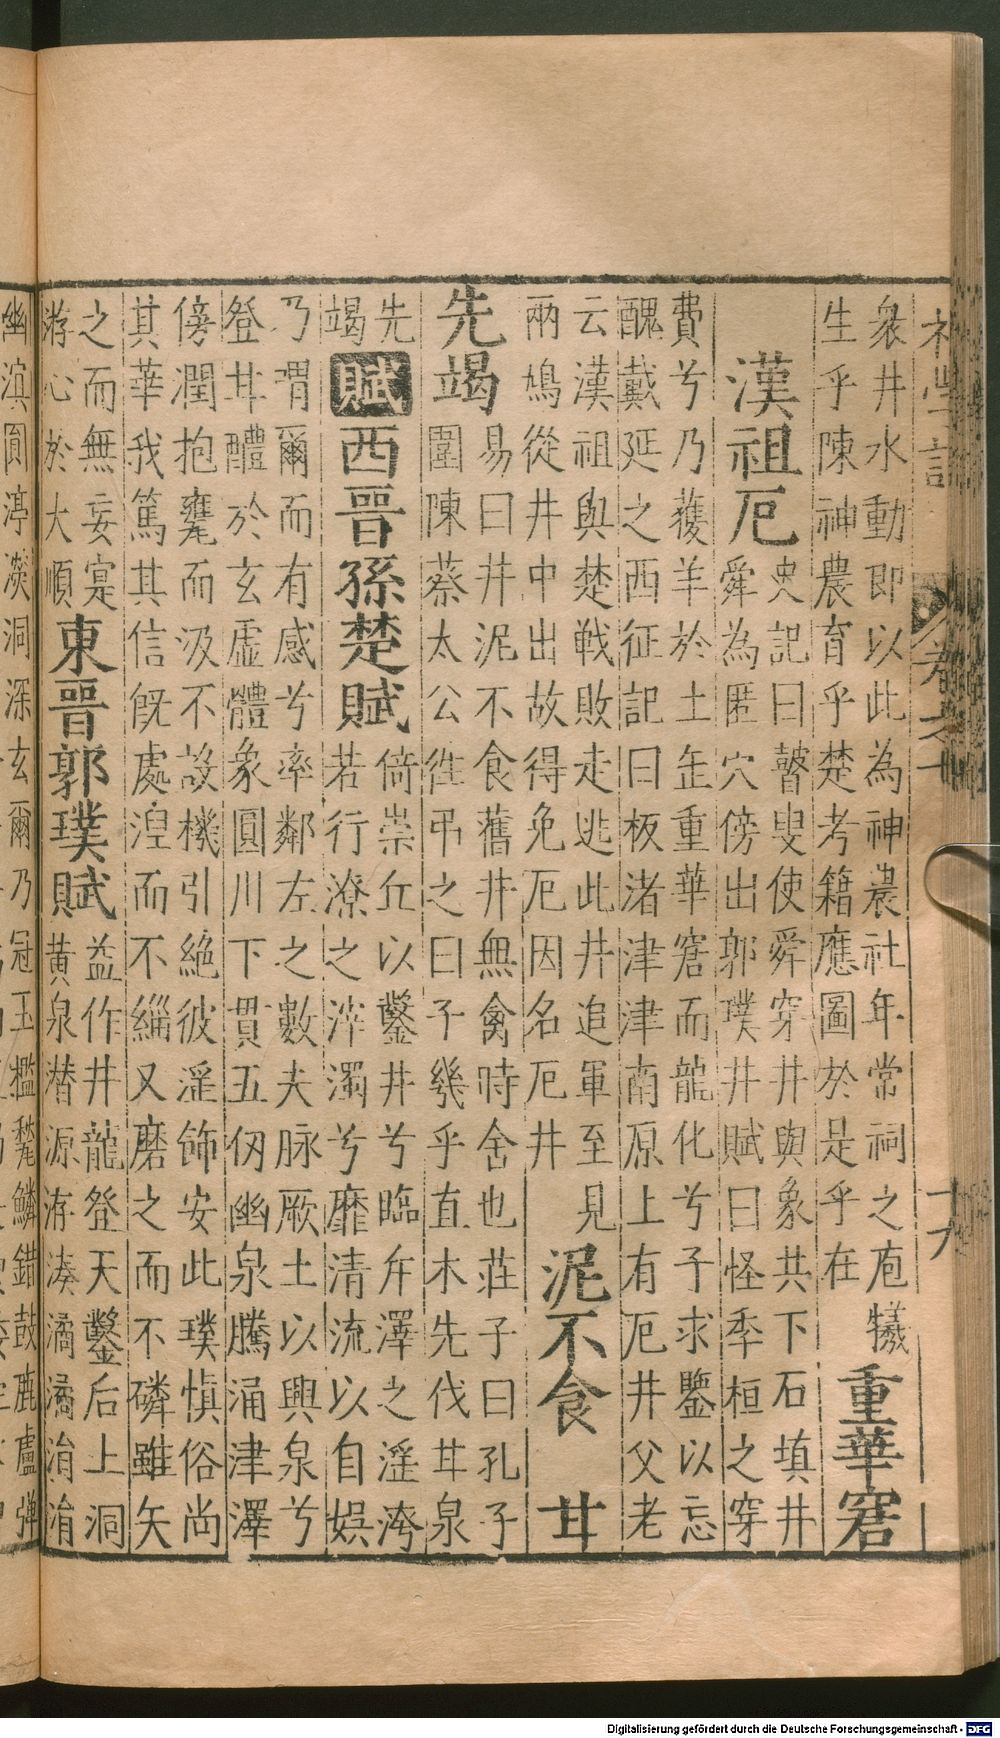 衆井水動即以此為神農社年常祠之庖犧
生乎陳神農育乎楚考籍應圖於是乎在
重華窘
漢祖厄
史記曰瞽叟使舜穿井與象共下石填井
舜為匿穴傍出郭璞井賦曰怪季桓之穿
費兮乃獲羊於土缶重華窘而龍化兮子求鑒以忘
醜戴延之西征記曰板渚津津南原上有厄井父老
云漢祖與楚戰敗走逃此井追軍至見
兩鳩從井中出故得免厄因名厄井
泥不食
甘
先竭
易曰井泥不食舊井無禽時舍也莊子曰孔子
圍陳蔡太公徃吊之曰子幾乎直木先伐甘泉
先
竭
賦
西晉孫楚賦
倚崇丘以鑿井兮臨斥澤之淫洿
若行潦之滓濁兮靡清流以自娱
乃謂爾而有感兮率鄰左之數夫脉厥土以興泉兮
登甘醴於玄虛體象圓川下貫五仞幽泉騰涌津澤
傍潤抱甕而汲不設機引絶彼淫飾安此璞慎俗尚
其華我篤其信旣處湼而不緇又磨之而不磷雖矢
之而無妄寔
游心於大順
東晉郭璞賦
益作井龍登天鑿后土洞
黄泉潜源洊湊潏潏㳙㳙
幽滇圓渟㴠洞深玄爾乃冠玉檻甃鱗錯鼓鹿盧弾
Digitalisierung gefördert durch die Deutsche Forschungsgemeinschaft - DFG